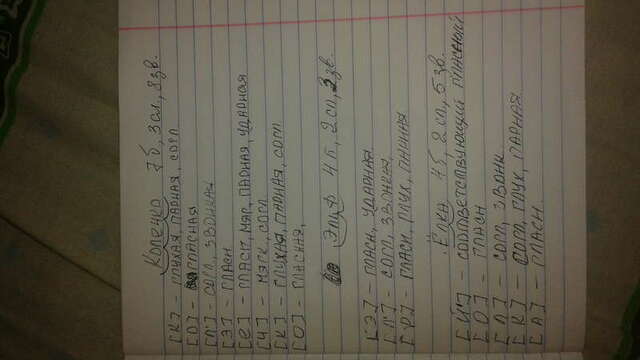 Коленко 7б, 3сл, 8зв.
[К] - глухая, парная, согл
[О] - гласная
[Л] согл, звонкая
[Э] - гласн
[е] - гласн, мяг, парная, ударная
[Ч] - мягк, согл
[К] - глухня, парная, согл
[О] - гласная,
Эльф 4б, 2сл, 3зв.
[Э] - гласн, ударная
[Л] - согл, звонкая
[Ф] - гласн, глух, парная
Ёлка 4б 2сл, 5зв.
[Й] - соответствующий гласный
[О] - гласн
[Л] - согл, звонк
[К] - согл, глух парная
[А] - гласн.